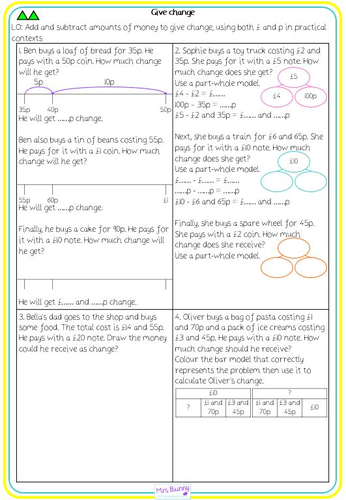 Give change
LO: Add and subtract amounts of money to give change, using both £ and p in practical
contexts
1. Ben buys a loaf of bread for 35p. He
pays with a 50p coin. How much change
will he get?
5p 10p
35p 40p 50p
He will get ......p change.
Ben also buys a tin of beans costing 55p.
He pays for it with a £1 coin. How much
change will he get?
55p 60p £1
He will get ......p change.
Finally, he buys a cake for 90p. He pays for
it with a £10 note. How much change will
he get?
He will get £...... and ......p change.
2. Sophie buys a toy truck costing £2 and
35p. She pays for it with a £5 note. How
much change does she get?
Use a part-whole model.
£5
£4 100p
£4 - £2 = £......
100p - 35p = ......p
£5 - £2 and 35p = £...... and ......p
Next, she buys a train for £6 and 65p. She
pays for it with a £10 note. How much
change does she get?
Use a part-whole model.
£10
£...... - £...... = £......
......p - ......p = ......p
£10 - £6 and 65p = £...... and ......p
Finally, she buys a spare wheel for 45p.
She pays with a £2 coin. How much
change does she receive?
Use a part-whole model.
3. Bella's dad goes to the shop and buys
some food. The total cost is £14 and 55p.
He pays with a £20 note. Draw the money
he could receive as change?
4. Oliver buys a bag of pasta costing £1
and 70p and a pack of ice creams costing
£3 and 45p. He pays with a £10 note. How
much change should he receive?
Colour the bar model that correctly
represents the problem then use it to
calculate Oliver's change.
£10 ?
? £1 and 70p £3 and 45p £1 and 70p £3 and 45p £10
Mrs Bunny